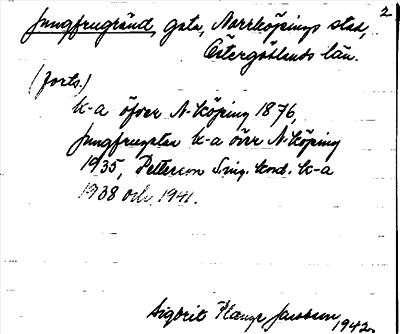 2
Jungfrugränd, gata, Norrköpings stad,
Östergötlands län.
(forts.)
k-a öfver N-köping 1876,
Jungfrugatan k-a över N-köping
1935, Petterson Sing. kord. k-a
1938 och 1941.
Sigbrit Plænge Jacobson 1942